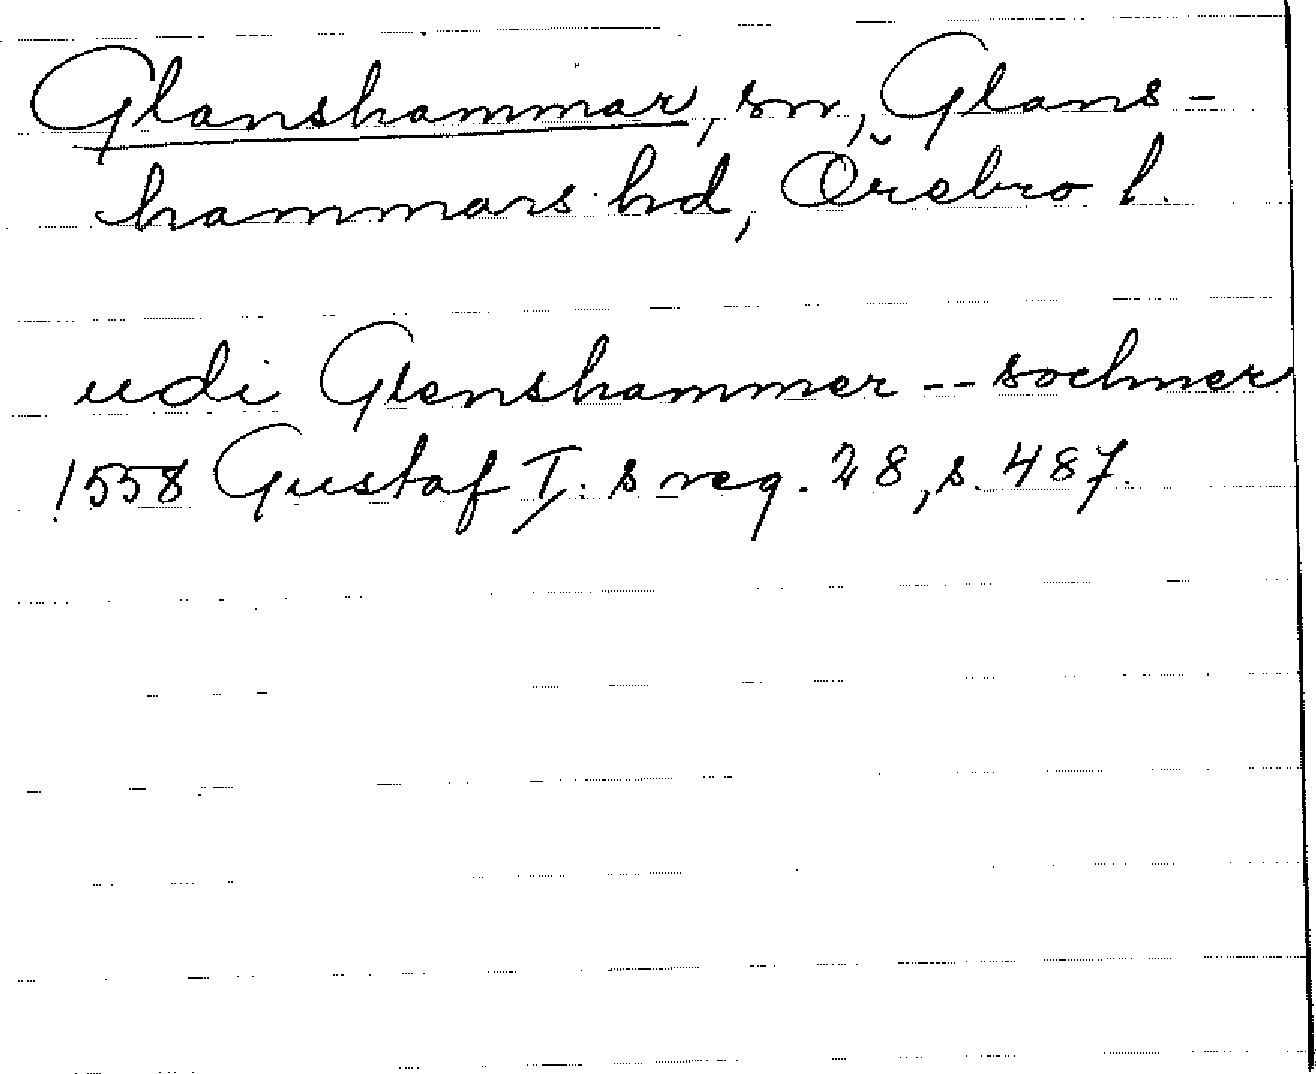 Glanshammar, sn, Glans-
hammars hd, Örebro l.
udi Glenshammer -- sochner
1558 Gustaf I:s reg. 28, s. 487.